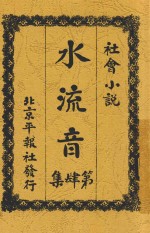 社會小說
水流音
第肆集
北京平報社發行